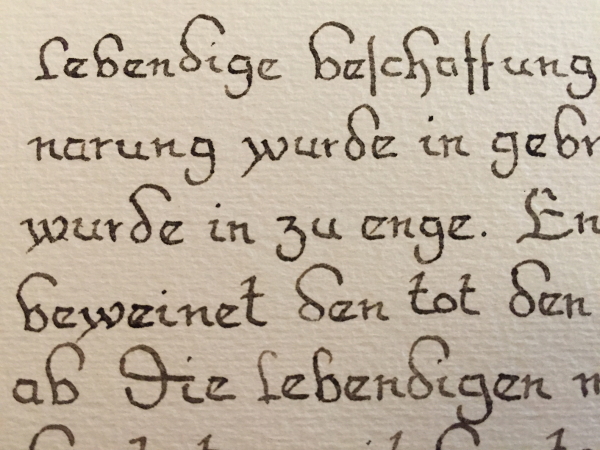 Lebendige beſchaffung
narung wurde in gebr
wurde in zu enge. En
beweinet den tot den
ab Die Lebendigen